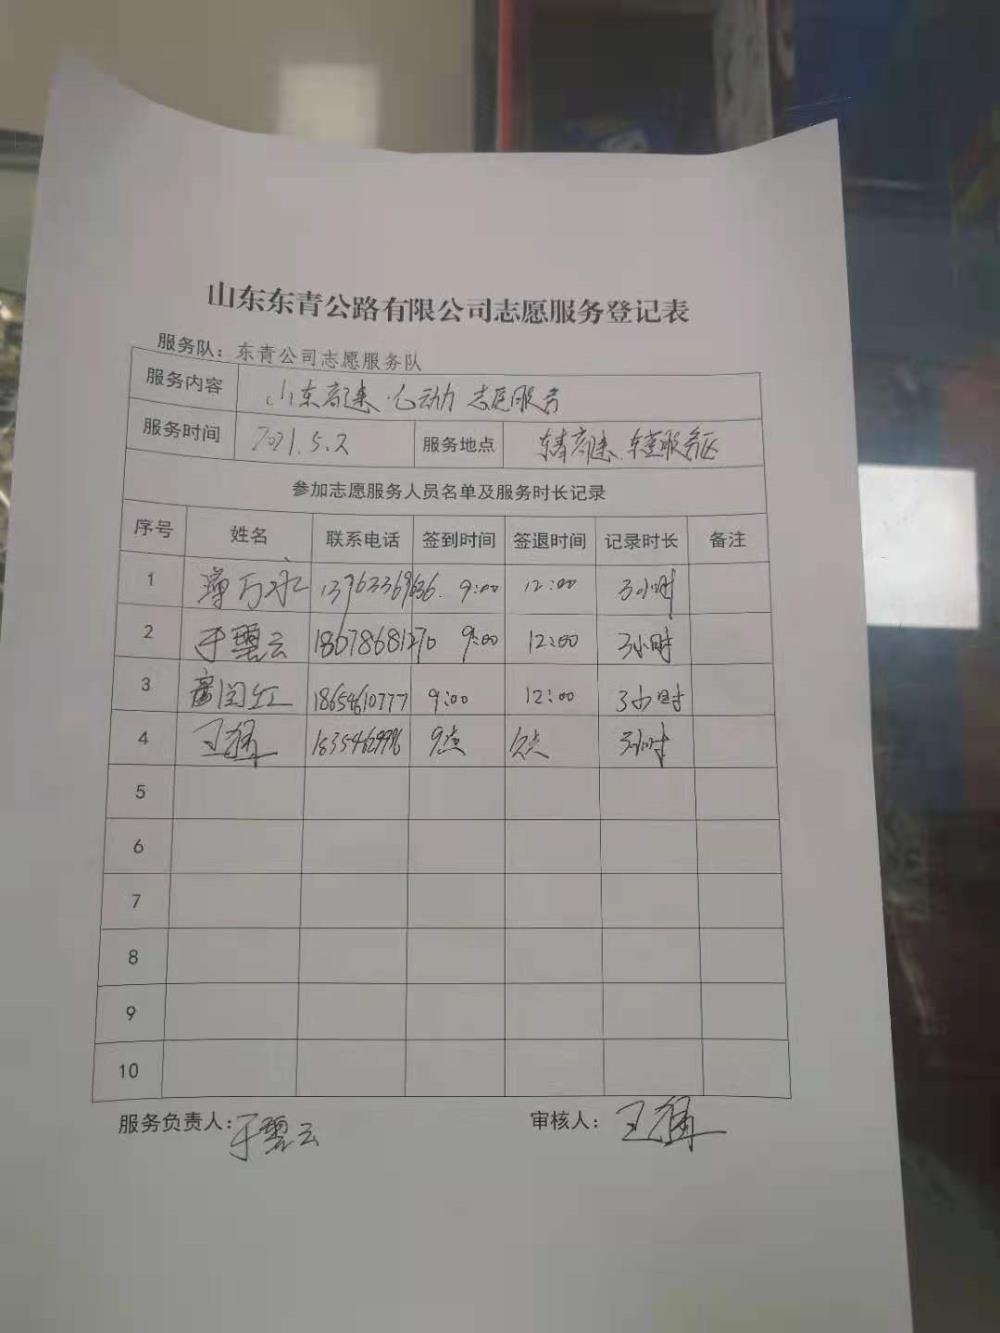 山东东青公路有限公司志愿服务登记表
服务队：东青公司志愿服务队
服务内容 山东高速·心动力 志愿服务
服务时间 2021.5.2 服务地点 东青高速 服务区
参加志愿服务人员名单及服务时长记录
序号 姓名 联系电话 签到时间 签退时间 记录时长 备注
1 万永 13963369636 9:00 12:00 3小时
2 于云 18678681270 9:00 12:00 3小时
3 闰红 18654610777 9:00 12:00 3小时
4 王 9点 3小时
5
6
7
8
9
10
服务负责人：于云 审核人：王